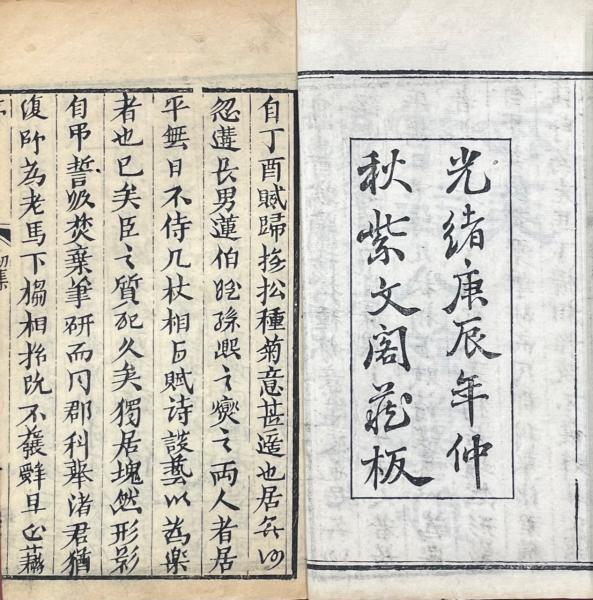 光緒庚辰年仲
秋紫文閣藏板
自丁酉賦歸撫松種菊意甚適也居无何
忽遘長男蓮伯姪孫熙之變之兩人者居
平無日不侍几杖相与賦诗談藝以為樂
者也已矣臣之質死久矣獨居塊然形影
自弔誓焚棄筆研而同郡科舉諸君猶
復師為老馬下榻相招既不獲辭且藉
初集